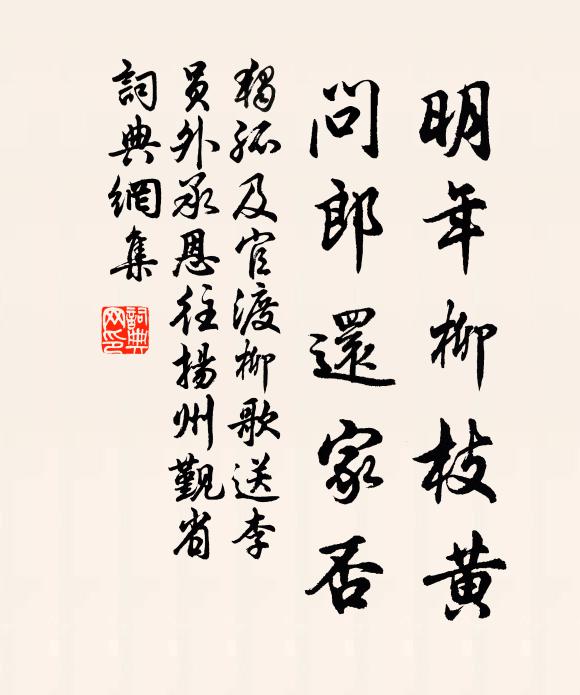 明年柳枝黄
問郎還家否
獨孤及官渡柳歌送李
員外承恩往揚州觀省
詞典網集
詞典网印